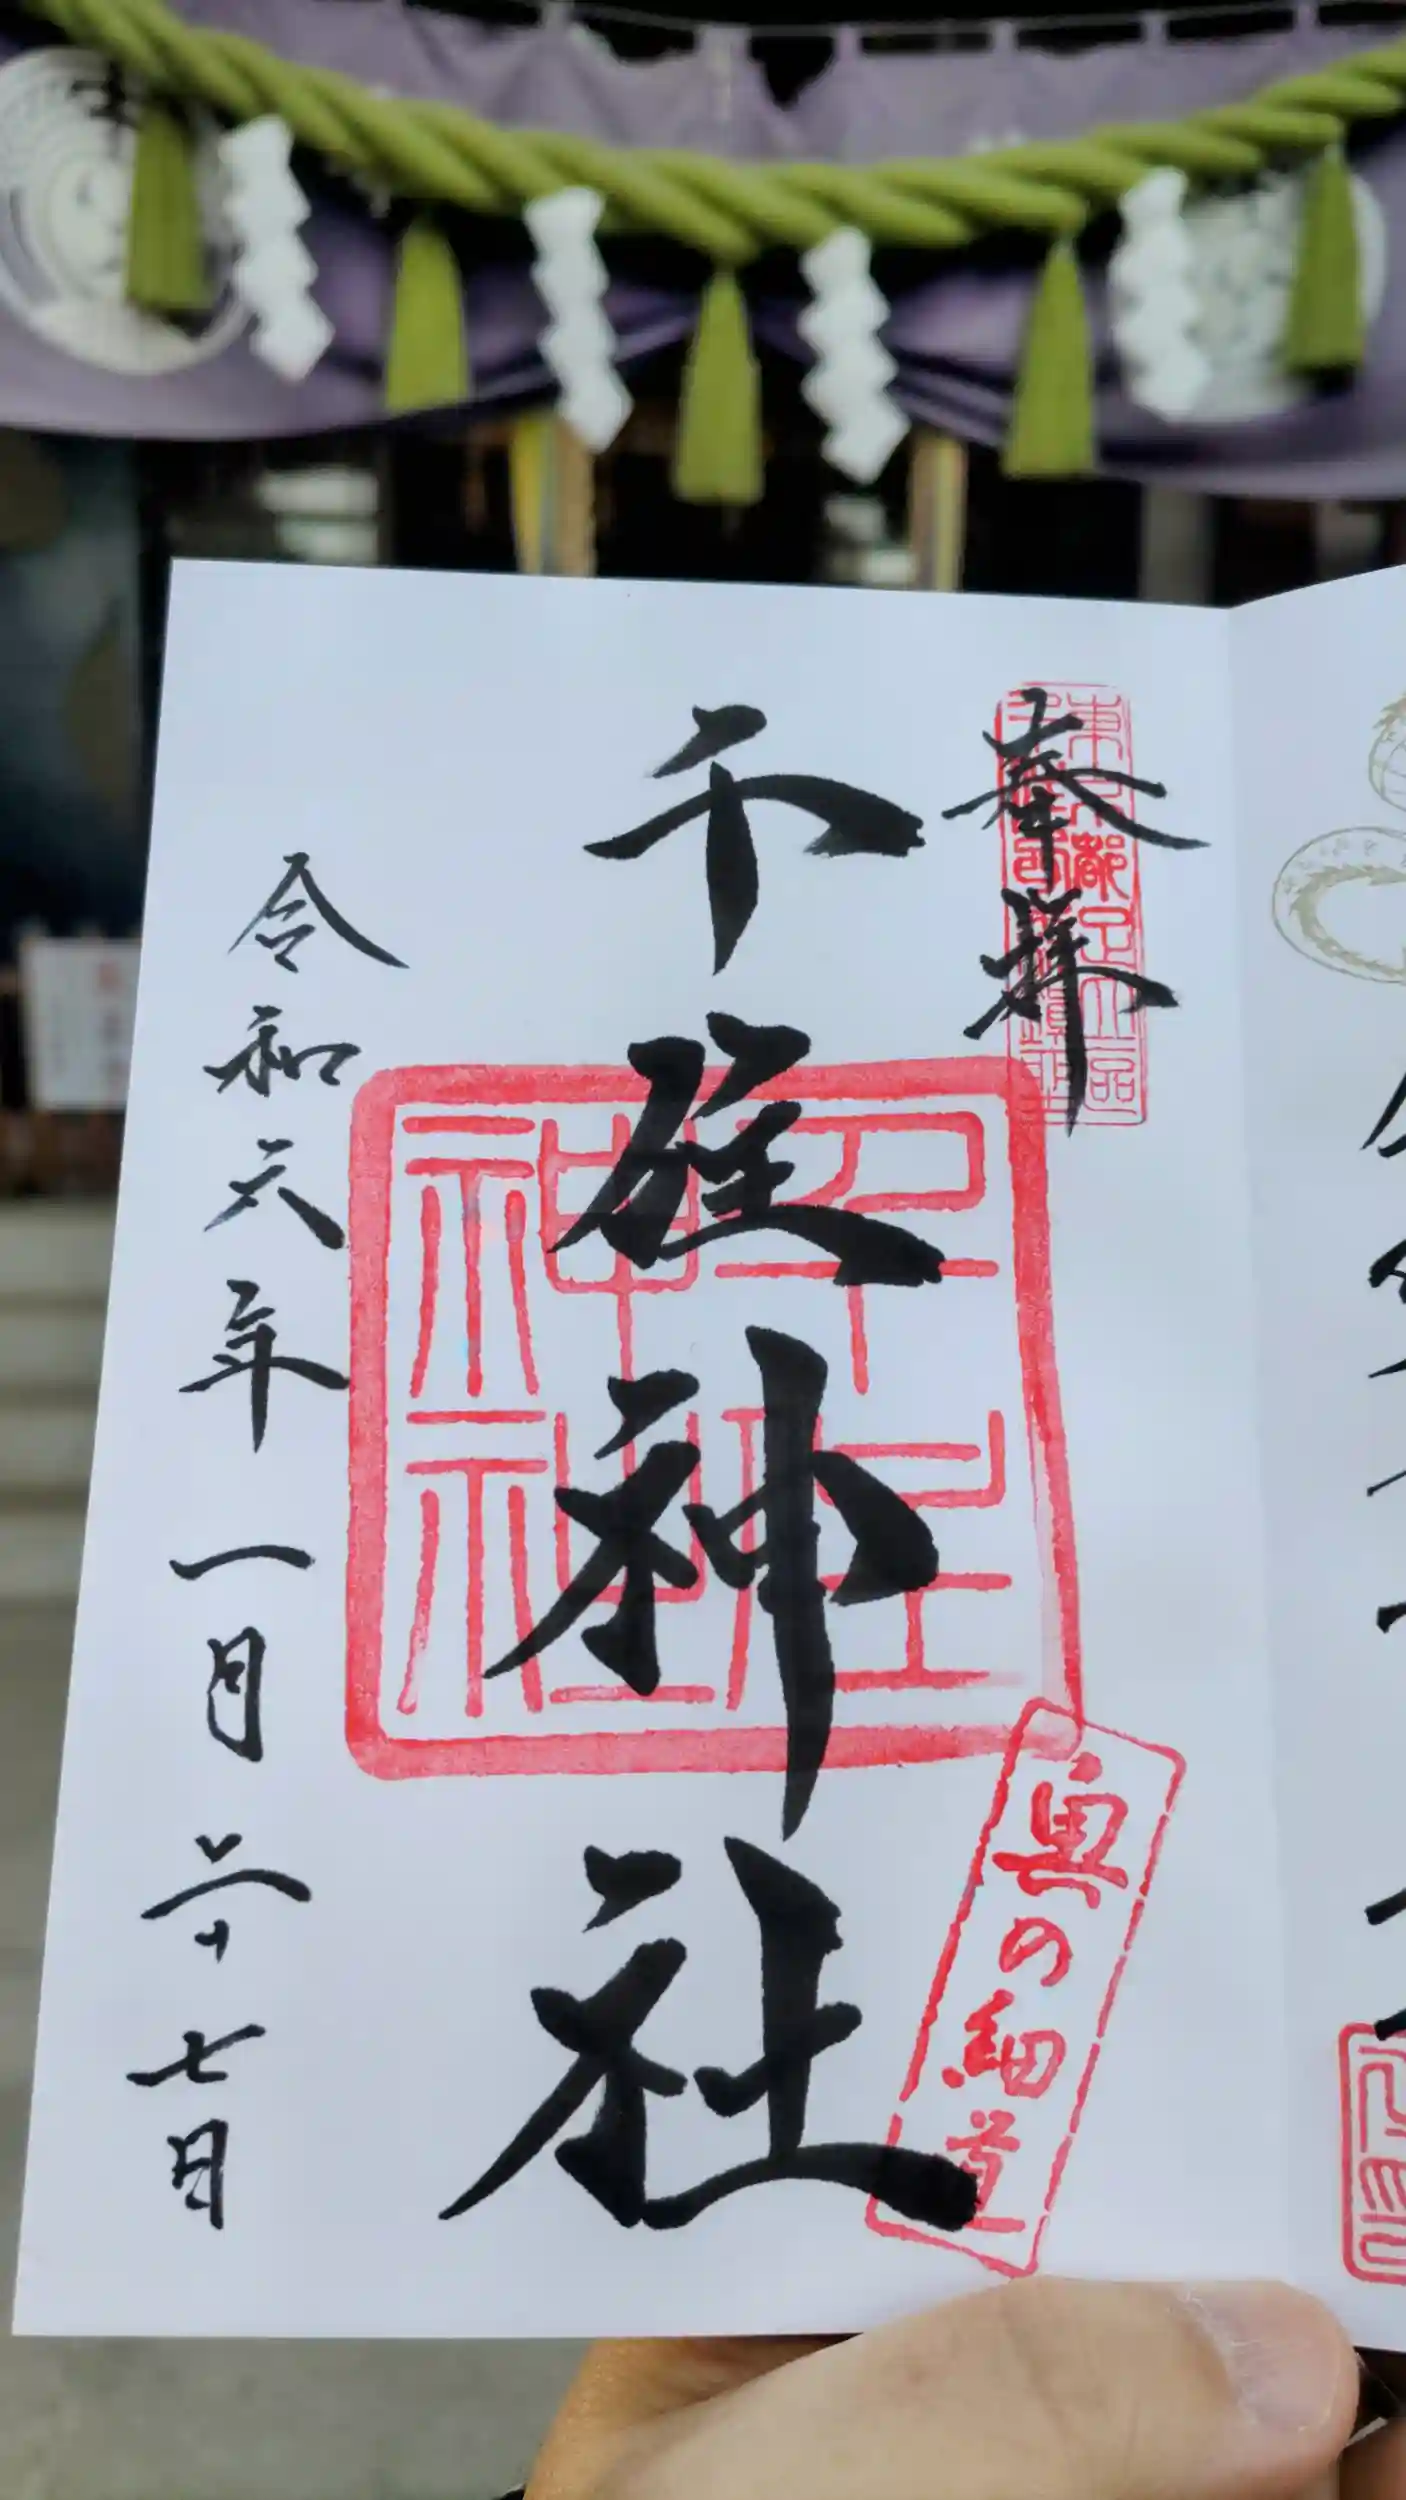 奉拝
東京都足立区
千住神社
千住神社
奥の細道
令和六年一月二十七日